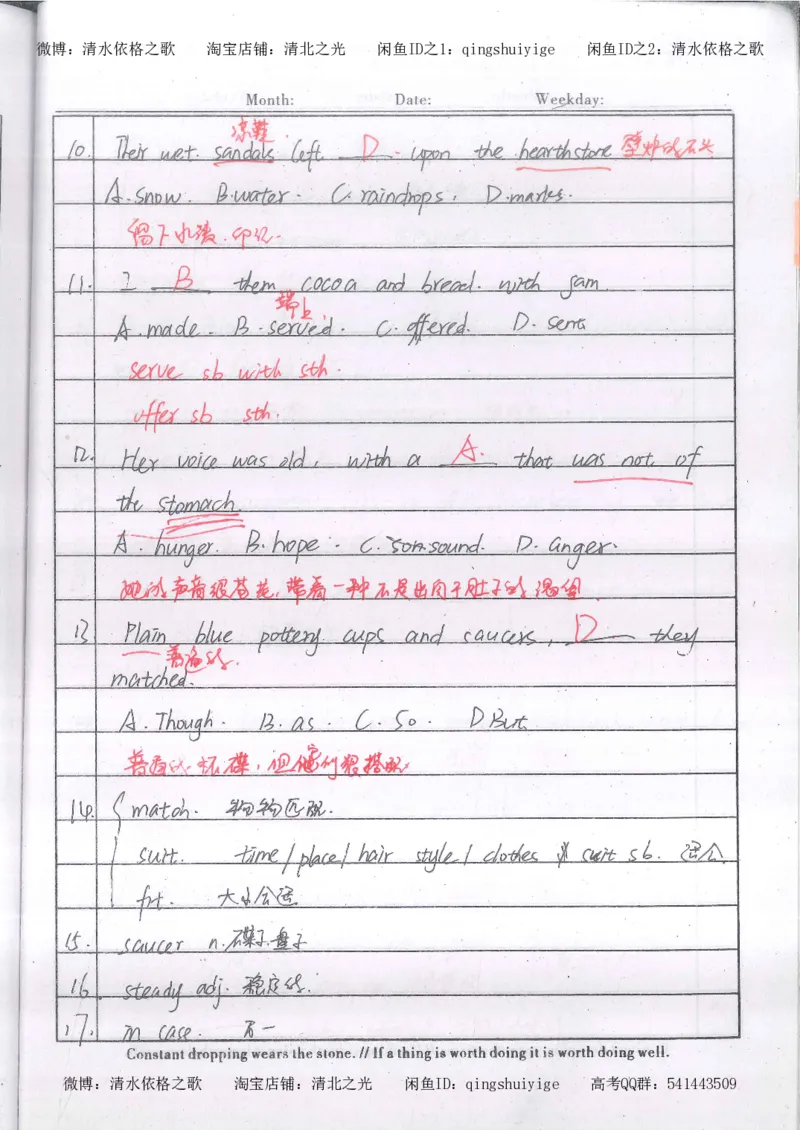 微博：清水依格之歌 淘宝店铺：清北之光 闲鱼ID之1：qingshuiyige 闲鱼ID之2：清水依格之歌
Month: Date: Weekday:
凉鞋.
10. Their wet. sandals left D. upon the hearthstone 壁炉的石头
A. snow. B. water. C. raindrops. D. marks.
留下水渍.印记.
11. I B them cocoa and bread. with jam.
端上.
A. made. B. served. C. offered. D. sent
serve sb with sth.
offer sb sth.
12. Her voice was old, with a A. that was not of
the stomach.
A. hunger. B. hope. C. sound. D. anger.
她的声音很苍老,带着一种不是出同于肚子的渴望.
13 Plain blue pottery cups and saucers, D they
普通的.
matched.
A. Though. B. as. C. So. D But.
普通的杯碟,但他们很搭配.
14. match. 物物匹配.
suit. time/place/hair style/clothes suit sb. 适合.
fit. 大小合适.
15. saucer n. 碟子.盘子
16. steady adj. 稳定的.
17. in case. 万一
Constant dropping wears the stone. // If a thing is worth doing it is worth doing well.
微博：清水依格之歌 淘宝店铺：清北之光 闲鱼ID：qingshuiyige 高考QQ群：541443509